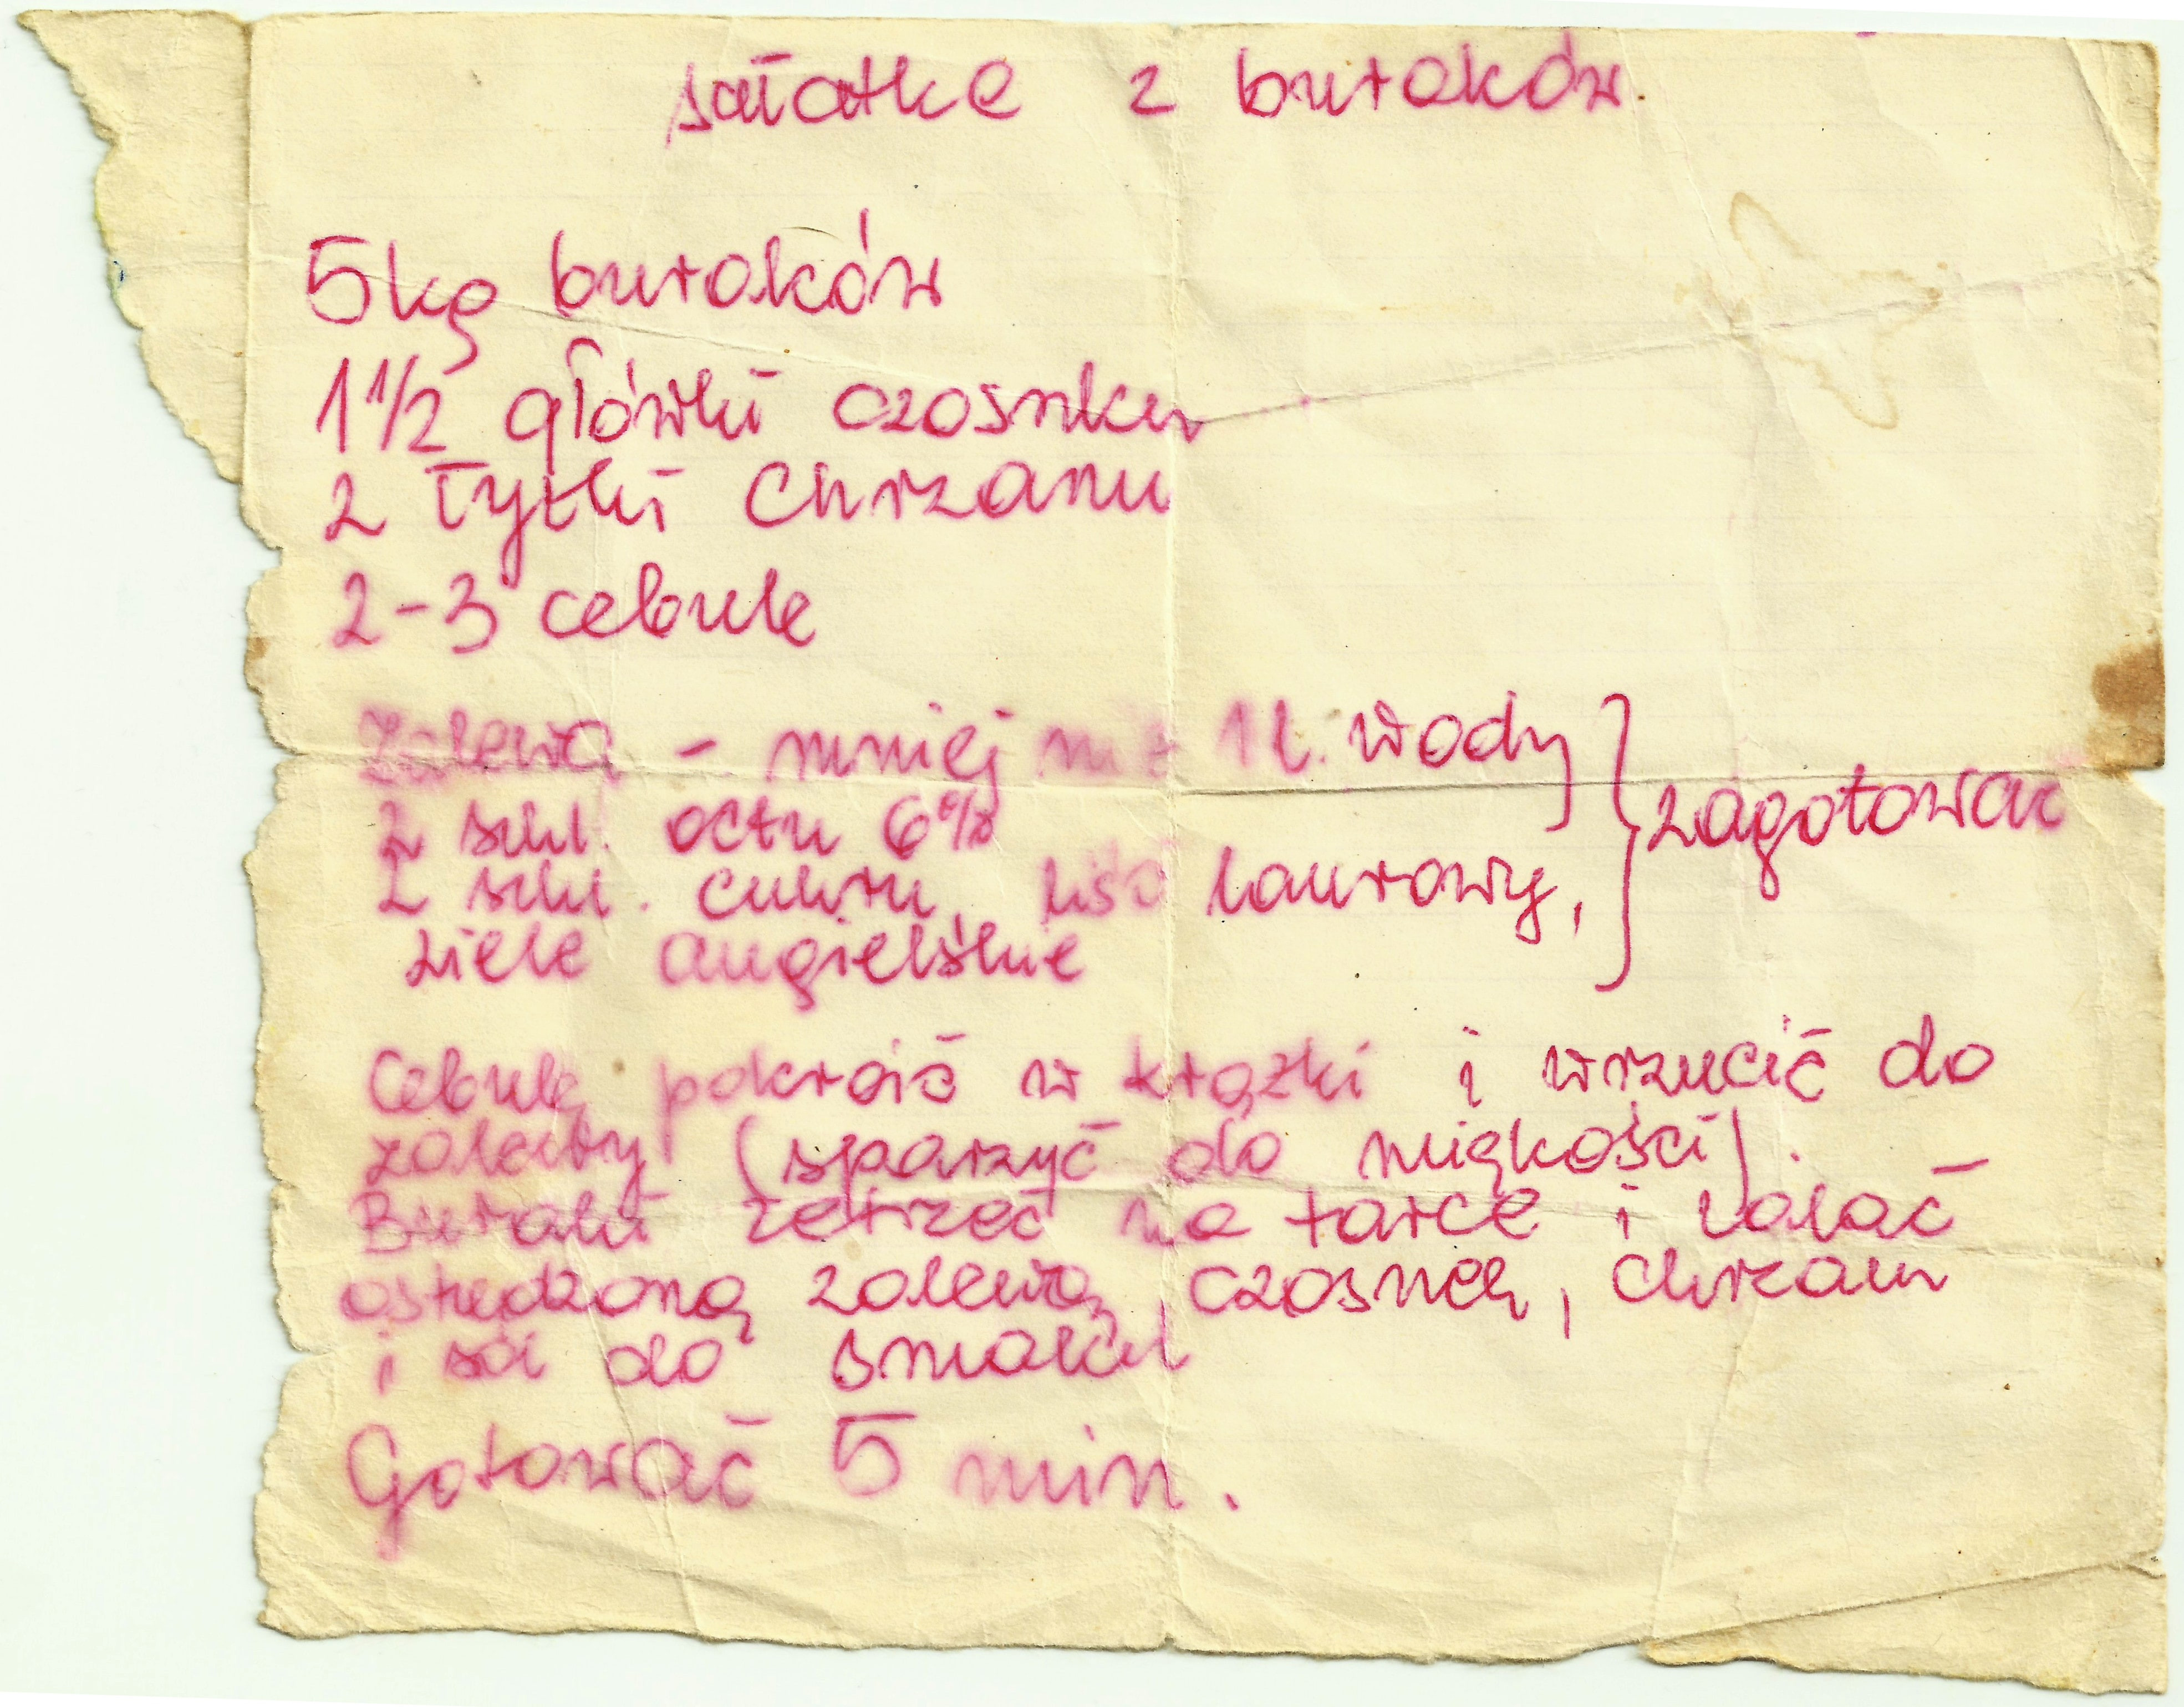 sałatka z buraków
5kg buraków
1 1/2 główki czosnku
2 łyżki chrzanu
2-3 cebule
Zalewa - mniej niż 1l. wody
2 szkl. octu 6%
2 szkl. cukru, liść laurowy,
ziele angielskie
zagotować
Cebulę pokroić w krążki i wrzucić do
zalewy (sparzyć do miękkości).
Buraki zetrzeć na tarce i zalać
ostudzoną zalewą, czosnek, chrzan
i sól do smaku
Gotować 5 min.